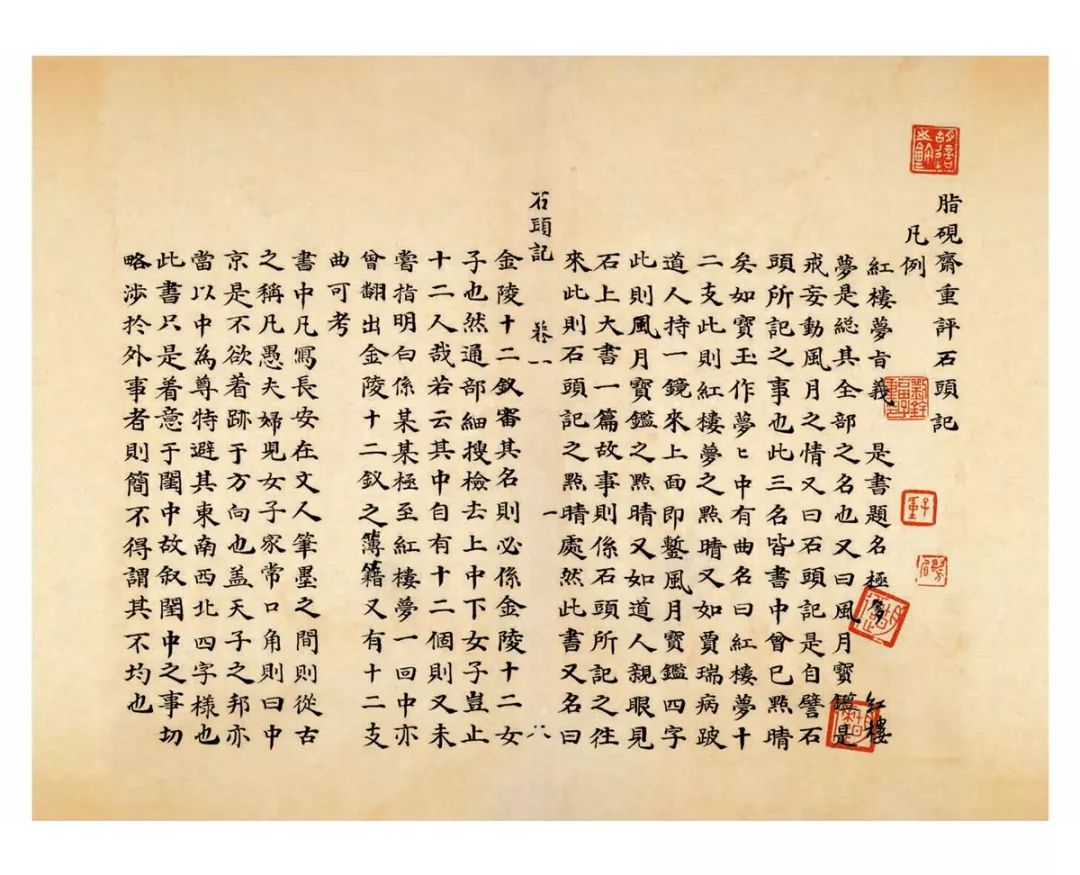 脂硯齋重評石頭記
凡例
紅樓夢旨義 是書題名極多 紅樓
夢是総其全部之名也又曰風月寶鑑是
戒妄動風月之情又曰石頭記是自譬石
頭所記之事也此三名皆書中曾已㸃睛
矣如寶玉作夢〻中有曲名曰紅樓夢十
二支此則紅樓夢之㸃睛又如賈瑞病跛
道人持一鏡來上面即鏨風月寶鑑四字
此則風月寶鑑之㸃睛又如道人親眼見
石上大書一篇故事則係石頭所記之往
來此則石頭記之㸃睛處然此書又名曰
石頭記 卷一 一
金陵十二釵審其名則必係金陵十二女
子也然通部細搜檢去上中下女子豈止
十二人哉若云其中自有十二個則又未
嘗指明白係某某極至紅樓夢一回中亦
曾翻出金陵十二釵之簿籍又有十二支
曲可考
書中凡寫長安在文人筆墨之間則從古
之稱凡愚夫婦兒女子家常口角則曰中
京是不欲着跡于方向也盖天子之邦亦
當以中為尊特避其東南西北四字樣也
此書只是着意于閨中故叙閨中之事切
略涉於外事者則簡不得謂其不均也